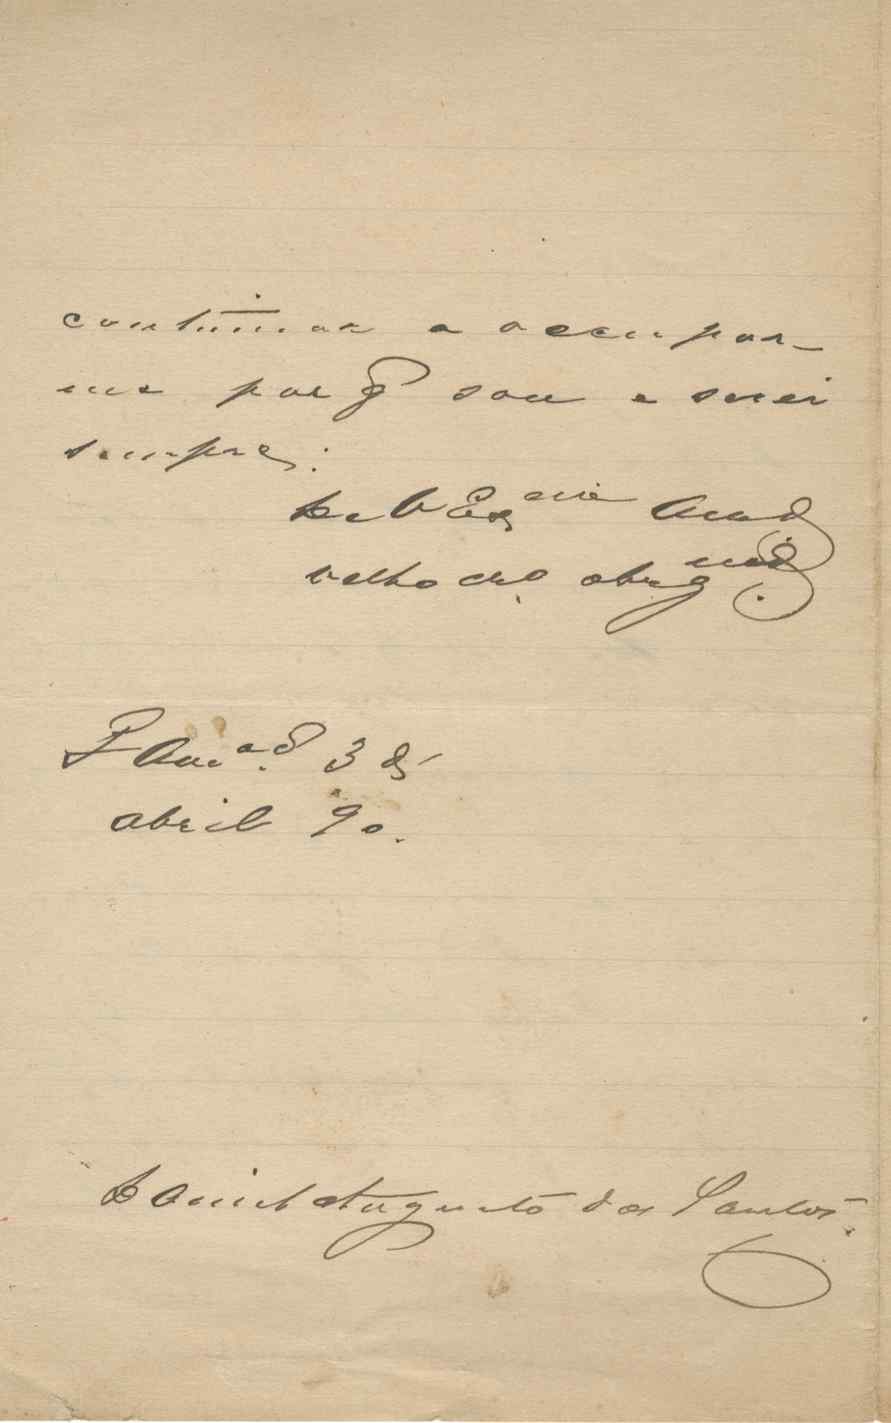 continuar a occupar-
me porq̃ sou e serei
sempre:
De V Exma Amo
velho cro. obrigmo
3 de
abril 90.
Daniel Augusto dos Santos.